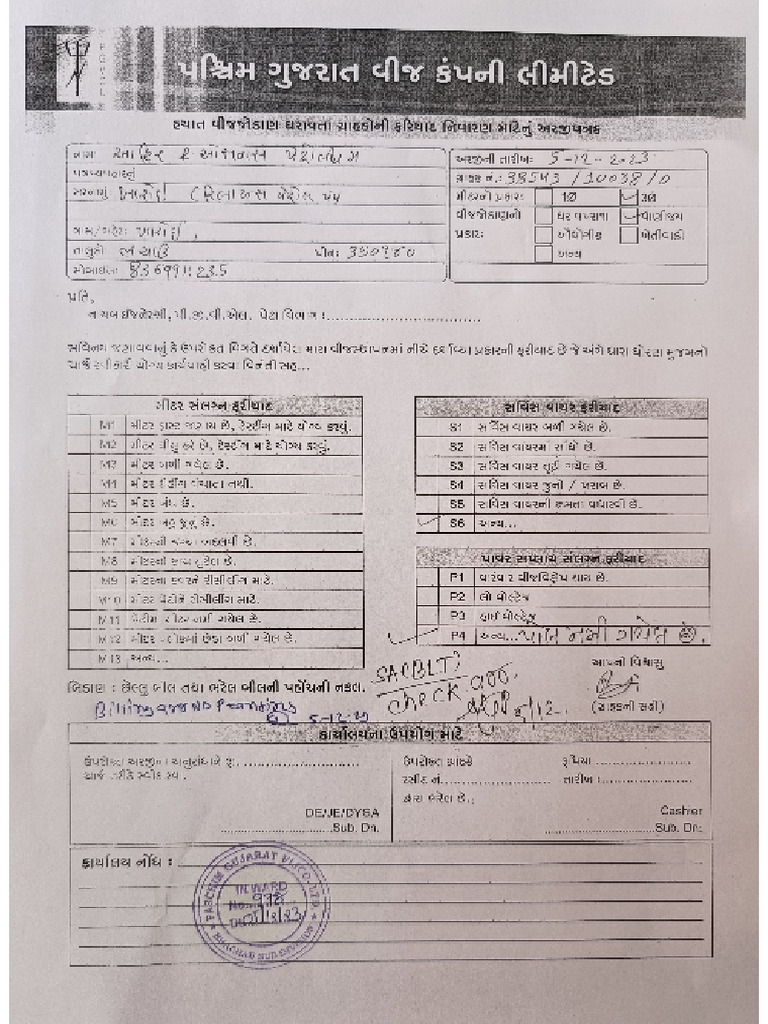 PGVCL
પશ્ચિમ ગુજરાત વીજ કંપની લીમીટેડ
હયાત વીજજોડાણ ધરાવતા ગ્રાહકોની ફરિયાદ નિવારણ માટેનું અરજીપત્રક
નામ: આહિર
પત્રવ્યવહારનું
સરનામું
ગામ/શહેર:
તાલુકો પીન:
મોબાઇલ:
અરજીની તારીખ: 5-12-2023
ગ્રાહક નં.: 38543/10038/0
મીટરનો પ્રકાર: 1Ø 3Ø
વીજજોડાણનો ઘર વપરાશ વાણીજય
પ્રકાર: ઔદ્યોગીક ખેતીવાડી
અન્ય
પ્રતિ,
નાયબ ઈજનેરશ્રી, પી.જી.વી.સેલ. પેટા વિભાગ :
સવિનય જણાવવાનું કે ઉપરોકત વિગતે દર્શાવેલ મારા વીજસ્થાપનમાં નીચે દર્શાવ્યા પ્રકારની ફરીયાદ છે જે અંગે ધારા ધોરણ મુજબનો
યોગ્ય કાર્યવાહી કરવા વિનંતી સહ...
મીટર સંલગ્ન ફરીયાદ
M1 મીટર ફાસ્ટ જણાય છે, ટેસ્ટીંગ માટે યોગ્ય કરવું.
M2 મીટર ધીમુ ફરે છે, ટેસ્ટીંગ માટે યોગ્ય કરવું.
M3 મીટર બળી ગયેલ છે.
M4 મીટર રીડીંગ વંચાતા નથી.
M5 મીટર બંધ છે.
M6 મીટર બહુ જુનું છે.
M7 મીટરની જગ્યા બદલવી છે.
M8 મીટરનો કાચ તુટેલ છે.
M9 મીટરના કવરને રીસીલીંગ માટે.
M10 મીટર પેટીને રીસીલીંગ માટે.
M11 મીટર બળી ગયેલ છે.
M12 મીટર બ્લોકમાં છેડા બળી ગયેલ છે.
M13 અન્ય...
સર્વિસ વાયર ફરીયાદ
S1 સર્વિસ વાયર બળી ગયેલ છે.
S2 સર્વિસ વાયરમાં સાંધો છે.
S3 સર્વિસ વાયર તૂટી ગયેલ છે.
S4 સર્વિસ વાયર જુનો / ખરાબ છે.
S5 સર્વિસ વાયરની ક્ષમતા વધારવી છે.
S6 અન્ય...
પાવર સપ્લાય સંલગ્ન ફરીયાદ
P1 વારંવાર વીજવિક્ષેપ થાય છે.
P2 લો વોલ્ટેજ
P3 હાઈ વોલ્ટેજ
P4 અન્ય... છે.
બિડાણ : છેલ્લુ બીલ તથા ભરેલ બીલની પહોંચની નકલ.
આપનો વિશ્વાસુ
(ગ્રાહકની સહી)
check
5/12
5-12-23
કાર્યાલયના ઉપયોગ માટે
ઉપરોક્ત અરજીના અનુસંધાને રૂ.
DE/JE/DYSA
Sub. Dn.
ઉપરોક્ત ગ્રાહકે રૂપિયા
રસીદ નં. તારીખ :
દ્વારા ભરેલ છે.
Cashier
Sub. Dn.
કાર્યાલય નોંધ :
PASCHIM GUJARAT VIJ CO. LTD.
INWARD
No.
BHACHAU SUB DIVISION